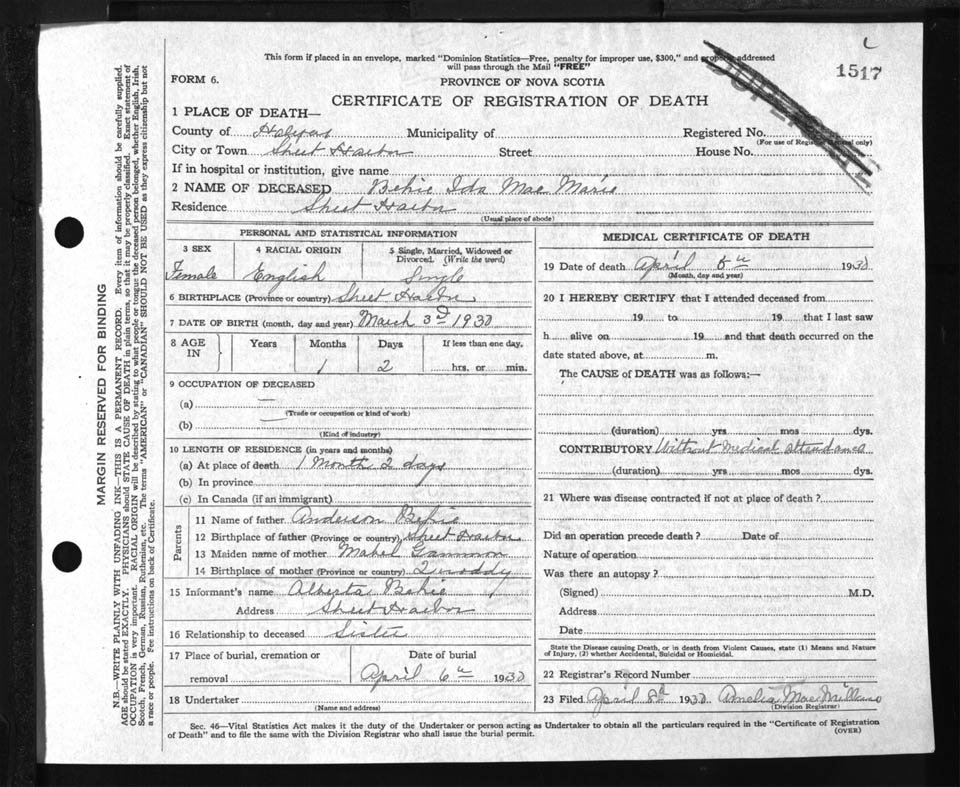 This form if placed in an envelope, marked "Dominion Statistics—Free, penalty for improper use, $300," and properly addressed
will pass through the Mail "FREE"
1517
FORM 6.
PROVINCE OF NOVA SCOTIA
CERTIFICATE OF REGISTRATION OF DEATH
1 PLACE OF DEATH—
County of Halifax Municipality of Registered No.
(For use of Registrar General only)
City or Town Sheet Harbor Street House No.
If in hospital or institution, give name
2 NAME OF DECEASED Behie Ida Mae Marie
Residence Sheet Harbor
(Usual place of abode)
PERSONAL AND STATISTICAL INFORMATION
3 SEX 4 RACIAL ORIGIN 5 Single, Married, Widowed or
Divorced. (Write the word)
Female English Single
6 BIRTHPLACE (Province or country) Sheet Harbor
7 DATE OF BIRTH (month, day and year) March 3d 1930
8 AGE IN Years Months Days If less than one day.
1 2 hrs. or min.
9 OCCUPATION OF DECEASED
(a) —
(Trade or occupation or kind of work)
(b) —
(Kind of industry)
10 LENGTH OF RESIDENCE (in years and months)
(a) At place of death 1 Month 2 days
(b) In province
(c) In Canada (if an immigrant)
Parents
11 Name of father Anderson Behie
12 Birthplace of father (Province or country) Sheet Harbor
13 Maiden name of mother Mabel Gammon
14 Birthplace of mother (Province or country) Quoddy
15 Informant's name Alberta Behie
Address Sheet Harbor
16 Relationship to deceased Sister
17 Place of burial, cremation or Date of burial
removal April 6th 1930
18 Undertaker
(Name and address)
MEDICAL CERTIFICATE OF DEATH
19 Date of death April 5th 1930
(Month, day and year)
20 I HEREBY CERTIFY that I attended deceased from
19 to 19 that I last saw
h alive on 19 and that death occurred on the
date stated above, at m.
The CAUSE of DEATH was as follows:—
(duration) yrs mos dys.
CONTRIBUTORY Without Medical attendance
(duration) yrs mos dys.
21 Where was disease contracted if not at place of death ?
Did an operation precede death ? Date of
Nature of operation
Was there an autopsy ?
(Signed) M.D.
Address
Date
State the Disease causing Death, or in death from Violent Causes, state (1) Means and Nature
of Injury, (2) whether Accidental, Suicidal or Homicidal.
22 Registrar's Record Number
23 Filed April 8th 1930 Amelia MacMillan
(Division Registrar)
Sec. 46—Vital Statistics Act makes it the duty of the Undertaker or person acting as Undertaker to obtain all the particulars required in the "Certificate of Registration
of Death" and to file the same with the Division Registrar who shall issue the burial permit.
(OVER)
MARGIN RESERVED FOR BINDING
N.B.—WRITE PLAINLY WITH UNFADING INK—THIS IS A PERMANENT RECORD. Every item of information should be carefully supplied.
AGE should be stated EXACTLY. PHYSICIANS should STATE CAUSE OF DEATH in plain terms, so that it may be properly classified. Exact statement of
OCCUPATION is very important. RACIAL ORIGIN will be described by stating to what people or tongue the deceased person belonged, whether English, Irish,
Scotch, French, German, Russian, Ruthenian, etc. The terms "AMERICAN" or "CANADIAN" SHOULD NOT BE USED as they express citizenship but not
a race or people. See instructions on back of Certificate.